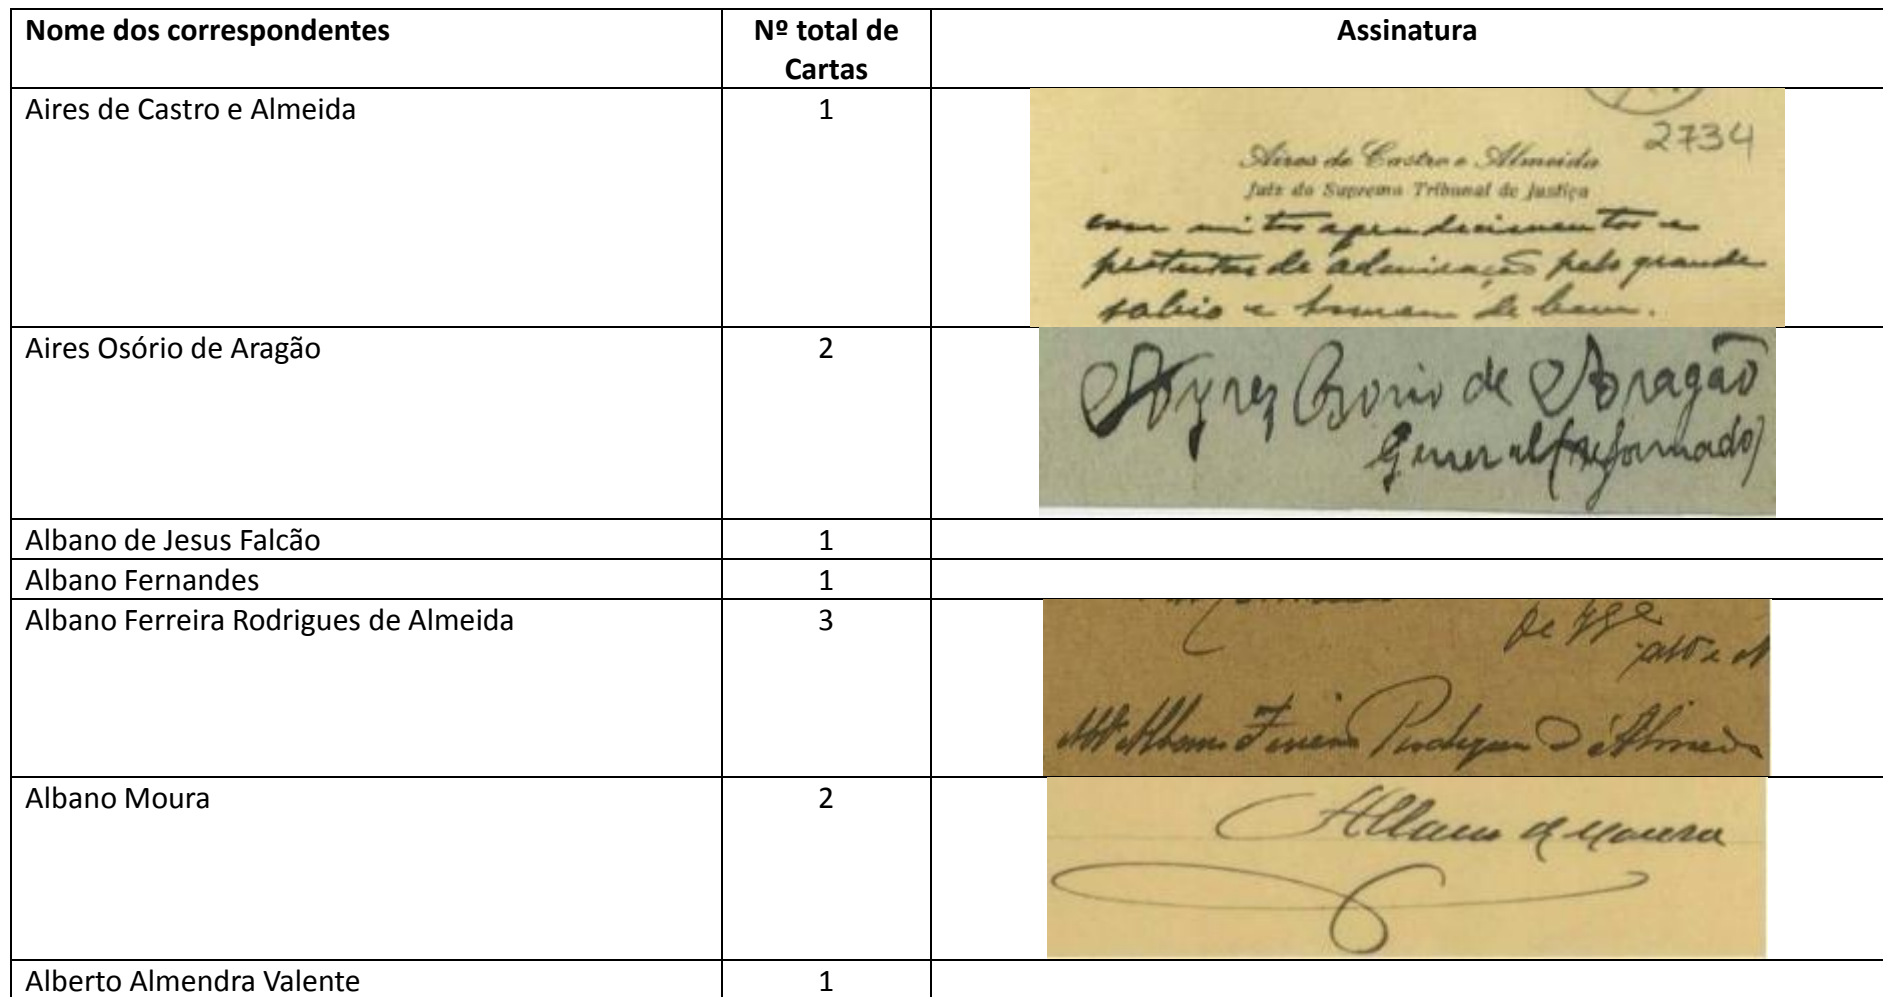 Nome dos correspondentes
Nº total de
Cartas
Assinatura
Aires de Castro e Almeida
1
2734
Aires de Castro e Almeida
Juiz do Supremo Tribunal de Justiça
com mitos agradecimentos e
protestos de admiração pelo grande
sabio e homem de bem.
Aires Osório de Aragão
2
Ayres Osorio de Aragão
General (reformado)
Albano de Jesus Falcão
1
Albano Fernandes
1
Albano Ferreira Rodrigues de Almeida
3
De
Albano Ferreira Rodrigues d'Almeida
Albano Moura
2
Albano de Moura
Alberto Almendra Valente
1